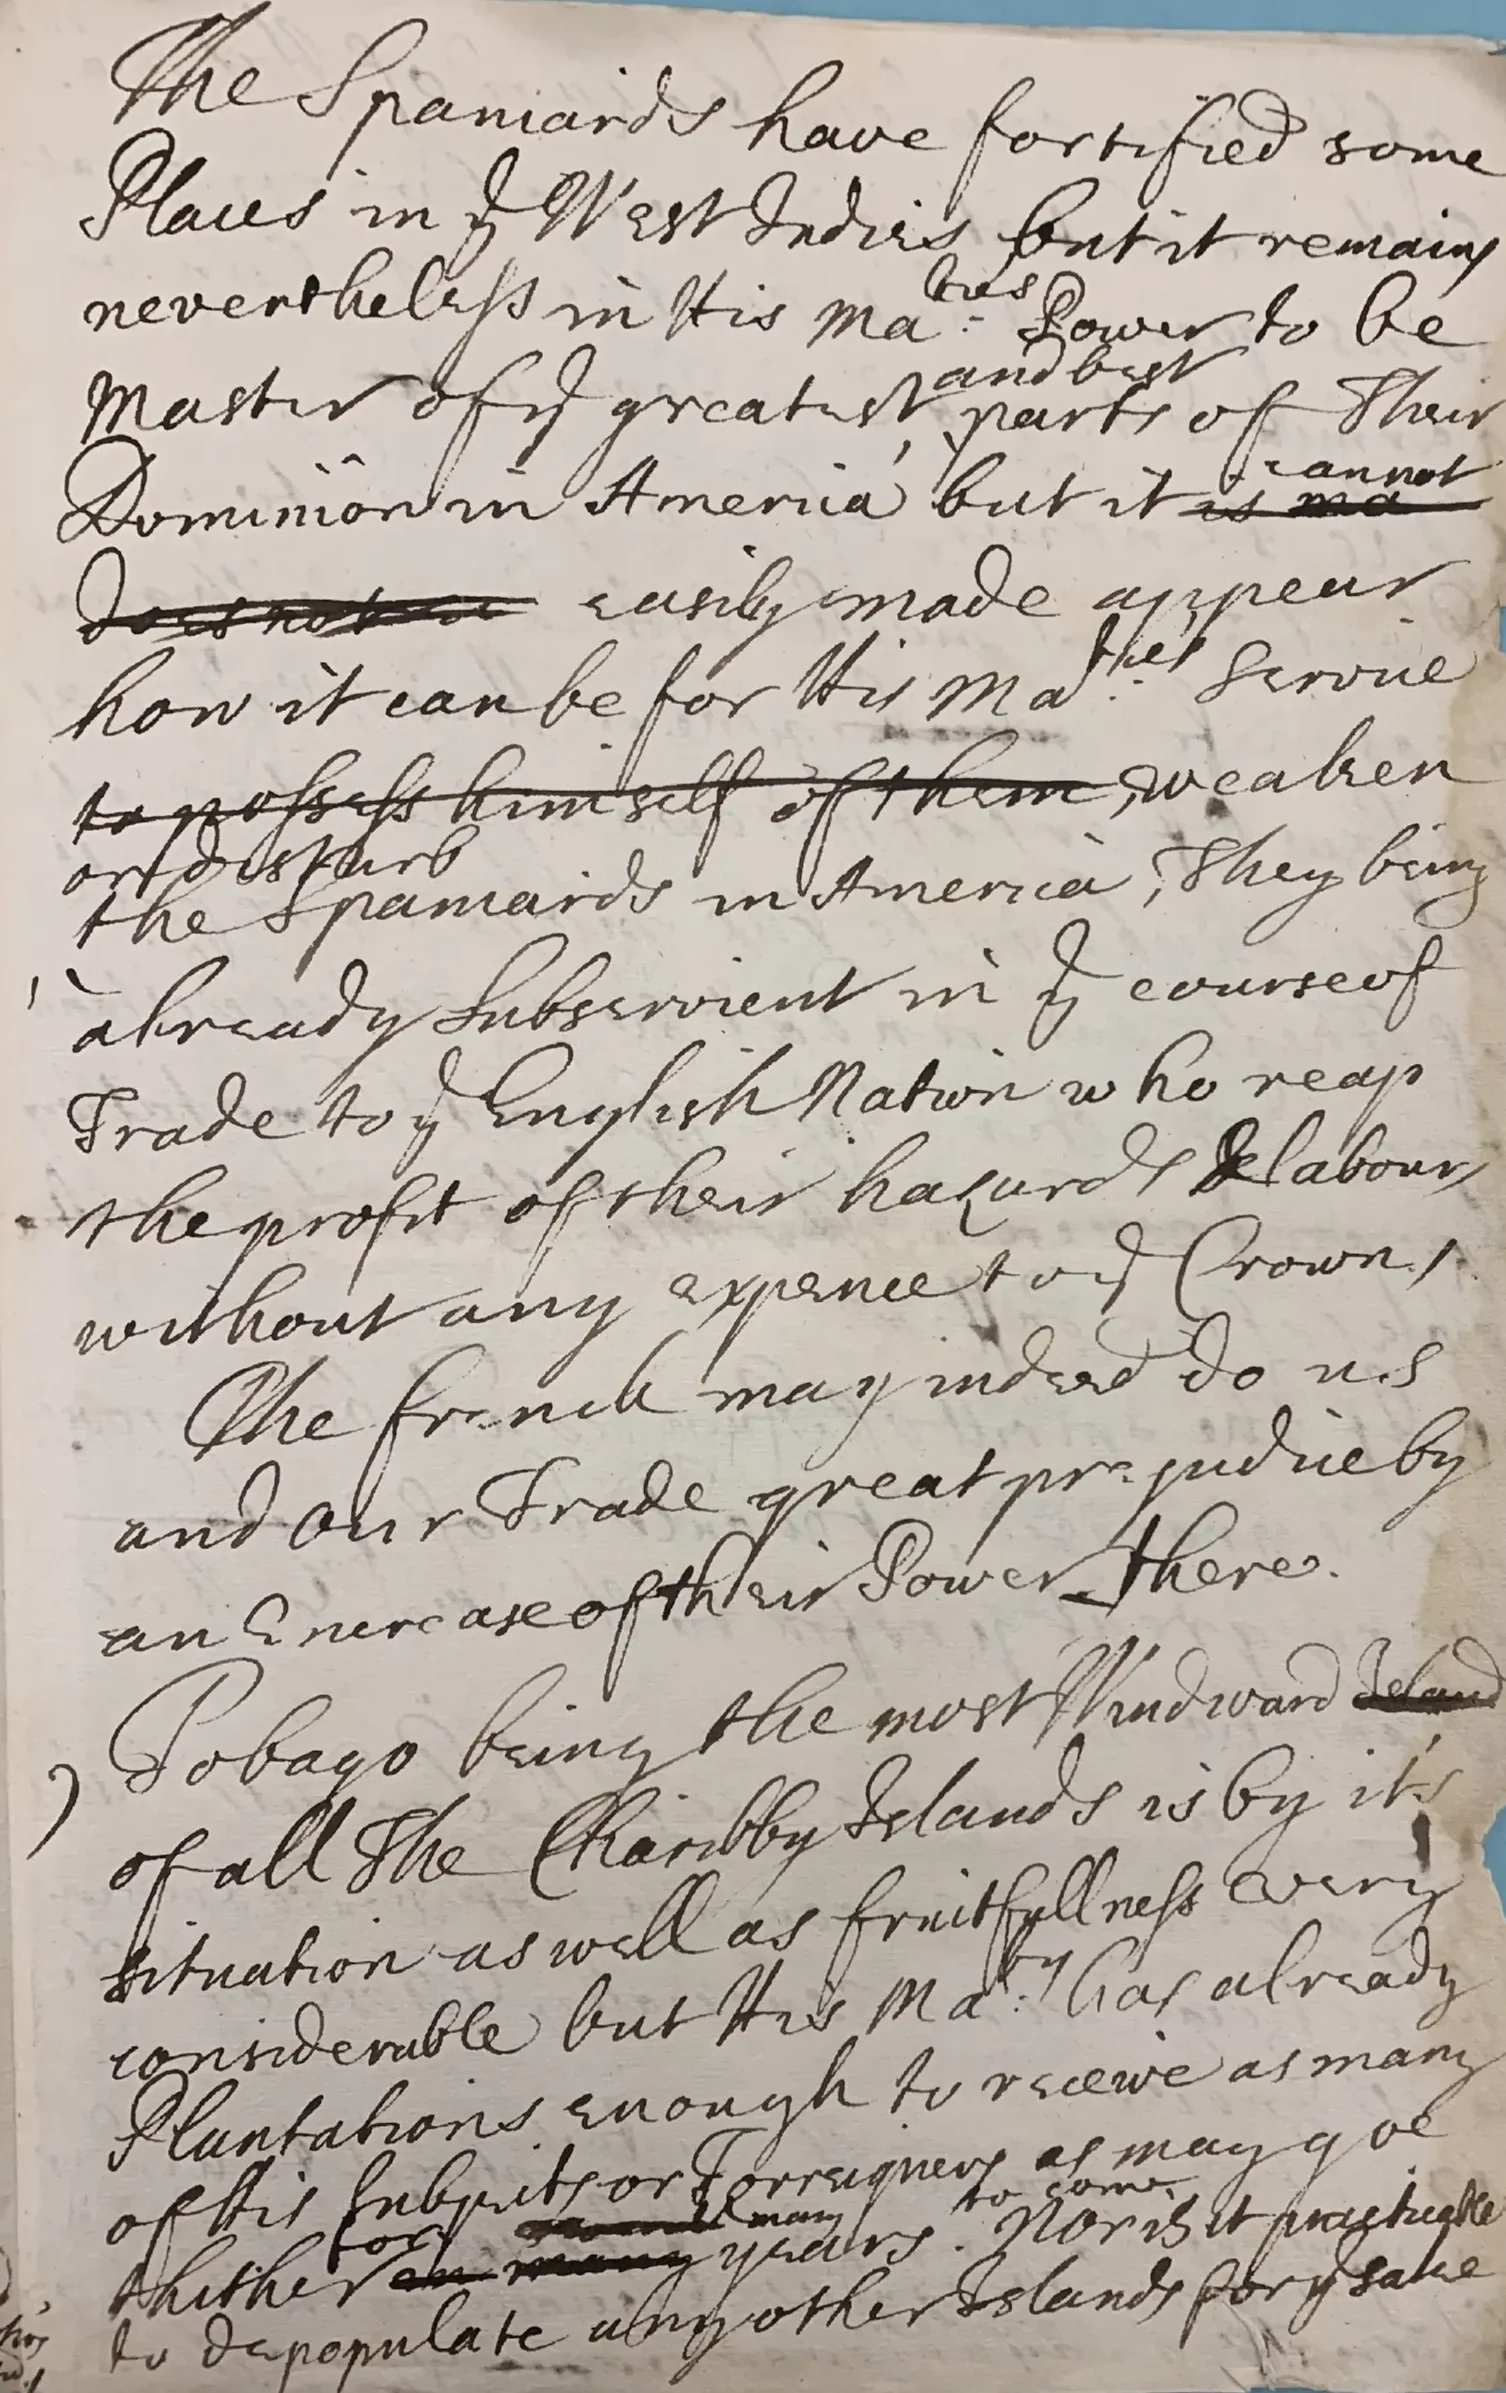 The Spaniards have fortified some
Places in ye West Indies, but it remains
nevertheless in His Ma:ties Power to be
Master of ye greatest and best parts of Their
Dominion in America, but it is ma cannot
does not easily made appear
how it can be for His Ma:ties Service
to possess himself of them, weaken
or disturb
the Spaniards in America, They being
already Subservient in ye course of
Trade to ye English Nation who reap
the profit of their hazards & labours
without any expence to ye Crown,
The french may indeed do us
and our Trade great prejudice by
an Encrease of their Power there.
Tobago being the most Windward Island
of all The Charibby Islands is by it's
situation as well as fruitfullness every
considerable but His Ma:ty has already
Plantations enough to receive as many
of His Subjects or Forreigners as may goe
thither for many many years to come. Nor is it practicable
to depopulate any other Islands for ye sake